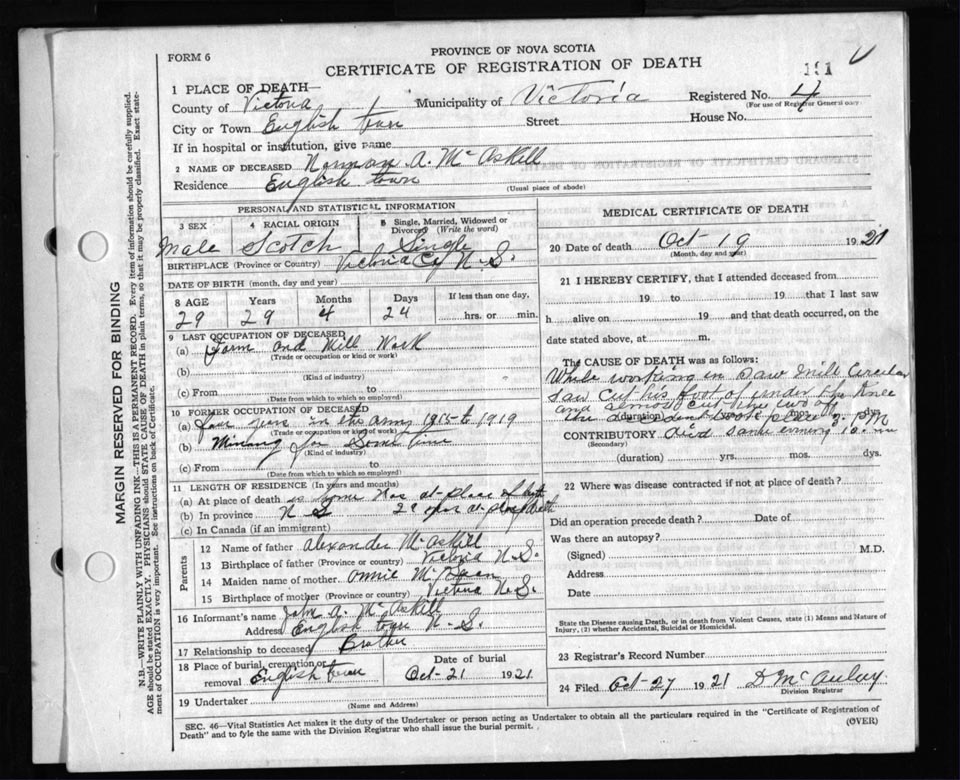 FORM 6
PROVINCE OF NOVA SCOTIA
CERTIFICATE OF REGISTRATION OF DEATH
191
1 PLACE OF DEATH—
County of Victoria Municipality of Victoria Registered No. 4
(For use of Registrar General only)
City or Town English town Street House No.
If in hospital or institution, give name
2 NAME OF DECEASED Norman A. McAskill
Residence English town
(Usual place of abode)
PERSONAL AND STATISTICAL INFORMATION
3 SEX 4 RACIAL ORIGIN 5 Single, Married, Widowed or Divorced (Write the word)
Male Scotch Single
BIRTHPLACE (Province or Country) Victoria Co N. S.
DATE OF BIRTH (month, day and year)
8 AGE Years Months Days If less than one day,
29 29 4 24 hrs. or min.
9 LAST OCCUPATION OF DECEASED
(a) Farm and Mill Work
(Trade or occupation or kind of work)
(b)
(Kind of industry)
(c) From to
(Date from which to which so employed)
10 FORMER OCCUPATION OF DECEASED
(a) four years in the army 1915 to 1919
(Trade or occupation or kind of work)
(b) Mining for Some time
(Kind of industry)
(c) From to
(Date from which to which so employed)
11 LENGTH OF RESIDENCE (In years and months)
(a) At place of death at place of
(b) In province N S 29 years at place death
(c) In Canada (if an immigrant)
Parents
12 Name of father Alexander McAskill
13 Birthplace of father (Province or country) Victoria N. S.
14 Maiden name of mother Annie
15 Birthplace of mother (Province or country) Victoria N. S.
16 Informant's name John A. McAskill
Address English town N. S.
17 Relationship to deceased Brother
18 Place of burial, cremation or removal English town Date of burial Oct-21 1921
19 Undertaker
(Name and Address)
MEDICAL CERTIFICATE OF DEATH
20 Date of death Oct 19 1921
(Month, day and year)
21 I HEREBY CERTIFY, that I attended deceased from
19 to 19 that I last saw
h alive on 19 and that death occurred, on the
date stated above, at m.
The CAUSE OF DEATH was as follows:
While working in Saw Mill Circular
Saw Cut his foot of under the Knee
and almost cut the two of
(duration) yrs. mos. dys.
the accident took place 3. P M
CONTRIBUTORY died same evening 10.
(Secondary)
(duration) yrs. mos. dys.
22 Where was disease contracted if not at place of death?
Did an operation precede death? Date of
Was there an autopsy?
(Signed) M.D.
Address
Date
State the Disease causing Death, or in death from Violent Causes, state (1) Means and Nature of Injury, (2) whether Accidental, Suicidal or Homicidal.
23 Registrar's Record Number
24 Filed Oct-27 1921 D McAuley
Division Registrar
SEC. 46—Vital Statistics Act makes it the duty of the Undertaker or person acting as Undertaker to obtain all the particulars required in the "Certificate of Registration of
Death" and to fyle the same with the Division Registrar who shall issue the burial permit. (OVER)
MARGIN RESERVED FOR BINDING
N.B.—WRITE PLAINLY WITH UNFADING INK—THIS IS A PERMANENT RECORD. Every item of information should be carefully supplied.
AGE should be stated EXACTLY. PHYSICIANS should STATE CAUSE OF DEATH in plain terms, so that it may be properly classified. Exact statement
of OCCUPATION is very important. See instructions on back of Certificate.